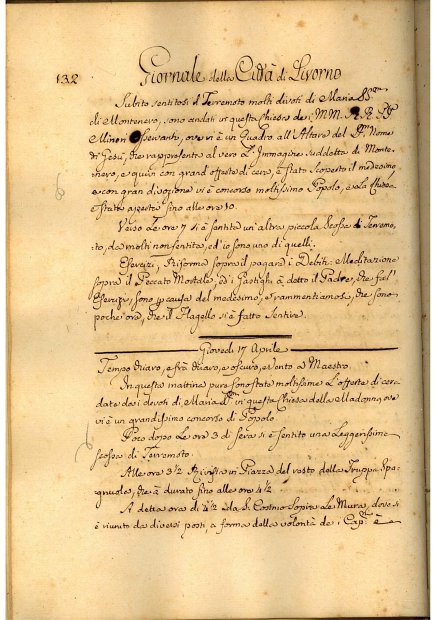 132 Giornale della Città di Livorno
Subito sentitosi il Terremoto molti divoti di Maria SS.ma
di Montenero, sono andati in questa Chiesa de i MM. RR. PP.
Minori Osservanti, ove vi è un Quadro all'Altare del SS. Nome
di Gesù, che rappresenta al vero L'Immagine suddetta di Monte-
nero, e quivi con grand'offerte di cera, è stato scoperto il medesimo,
e con gran divozione vi è concorso moltissimo Popolo, e La Chiesa
è stata aperta fino alle ore 10.
Verso Le ore 7 si è sentita un'altra piccola Scossa di Terremo-
to, da molti non sentita, ed io sono uno di quelli.
Esercizi, Riforma sopra il pagare i Debiti: Meditazione
sopra il Peccato Mortale, ed i Gastighi à detto il Padre, che fa l'
Esercizi, sono p causa del medesimo, e rammentiamoci, che sono
poche ora, che il Flagello si è fatto Sentire.
Giovedì 17 Aprile
Tempo chiaro, e frà chiaro, e oscuro, e vento a Maestro.
In questa mattina pure sono state moltissime L'offerte di cera
date da i devoti di Maria SS.ma in questa Chiesa della Madonna, ove
vi è un grandissimo concorso di Popolo.
Poco dopo Le ore 3 di sera si è sentito una Leggerissima
scossa di Terremoto.
Alle ore 3½ Rivista in Piazza del resto della Truppa Spa-
gnuola, che à durato fino alle ore 4½.
A detta ora di 4½ da S. Cosmo Sopra Le Mura, dove si
è riunito da diversi posti, a forma della volontà de i Capi è